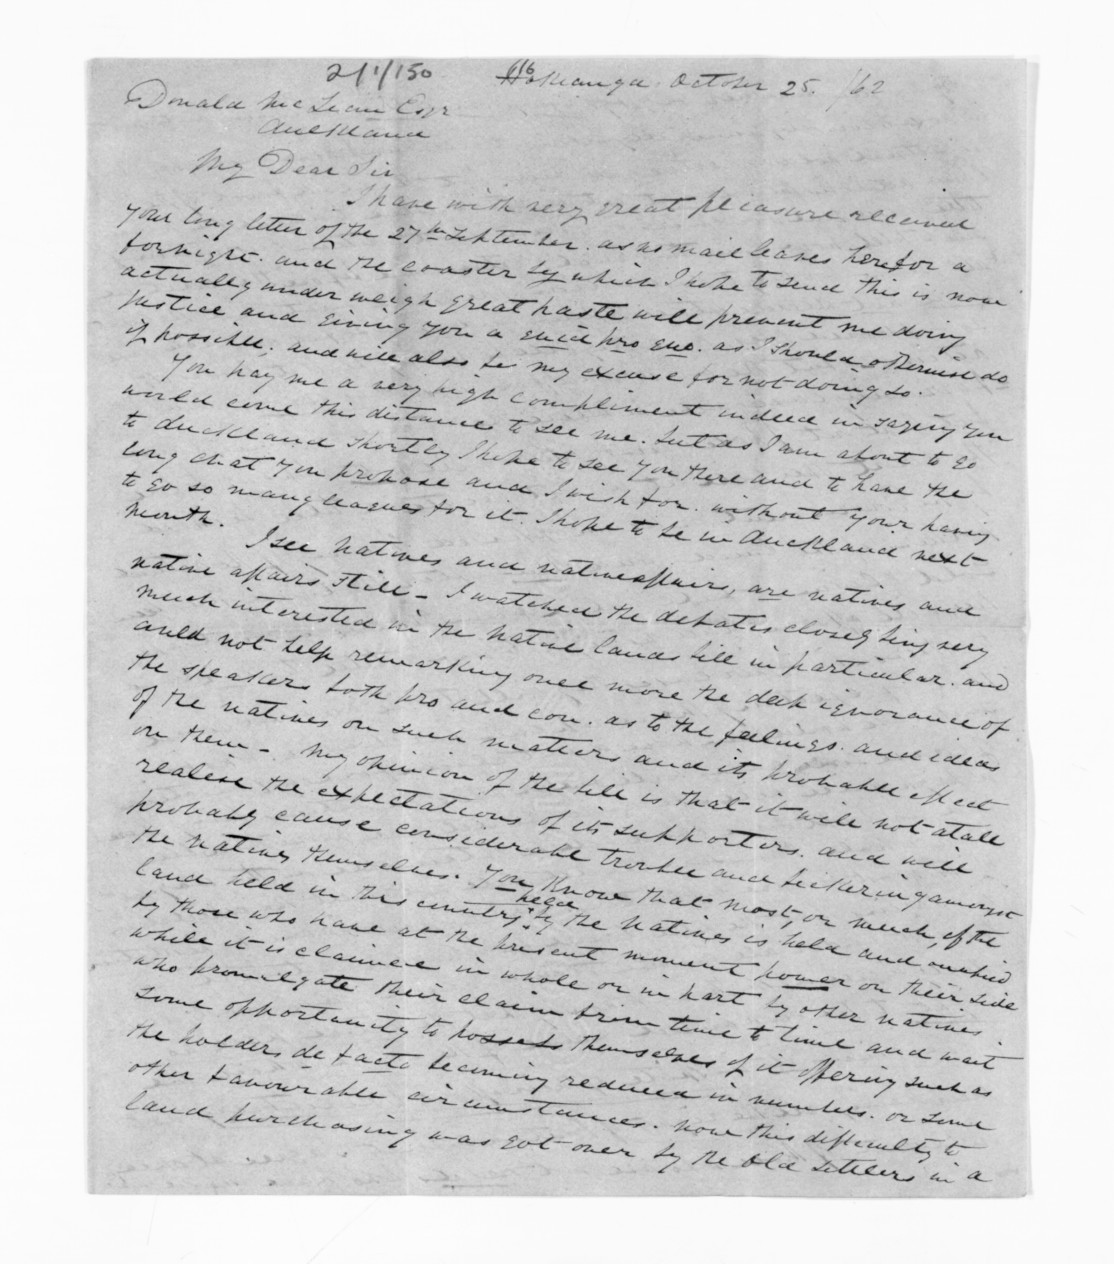 2/1/150
616
Hokianga. October 25. /62
Donald McLean Esqr
Auckland
My Dear Sir
I have with very great pleasure received
your long letter of the 27th September. as no mail leaves here for a
fornight. and the coaster by which I hope to send this is now
actually under weigh great haste will prevent me doing
justice and giving you a quid pro quo. as I should otherwise do
if possible; and will also be my excuse for not doing so.
You pay me a very high compliment indeed in saying you
would come this distance to see me. but as I am about to go
to Auckland shortly I hope to see you there and to have the
long chat you propose and I wish for. without your having
to go so many leagues for it. I hope to be in Auckland next
month.
I see Natives and native affairs, are natives and
native affairs still - I watched the debates closely being very
much interested in the Native lands bill in particular. and
could not help remarking once more the deep ignorance of
the speakers both pro and con. as to the feelings. and ideas
of the natives on such matters and its probable effect
on them - My opinion of the bill is that it will not atall
realise the expectations of its supporters. and will
probably cause considerable trouble and bickering amongst
the natives themselves. You know that most, or much, of the
land held in this country held by the Natives is held and occupied
by those who have at the present moment power on their side
while it is claimed in whole or in part by other natives
who promulgate their claim from time to time and wait
some opportunity to possess themselves of it offering such as
the holders de facto becoming reduced in numbers. or some
other favourable circumstances. now this difficulty to
land purchasing was got over by the old settlers in a